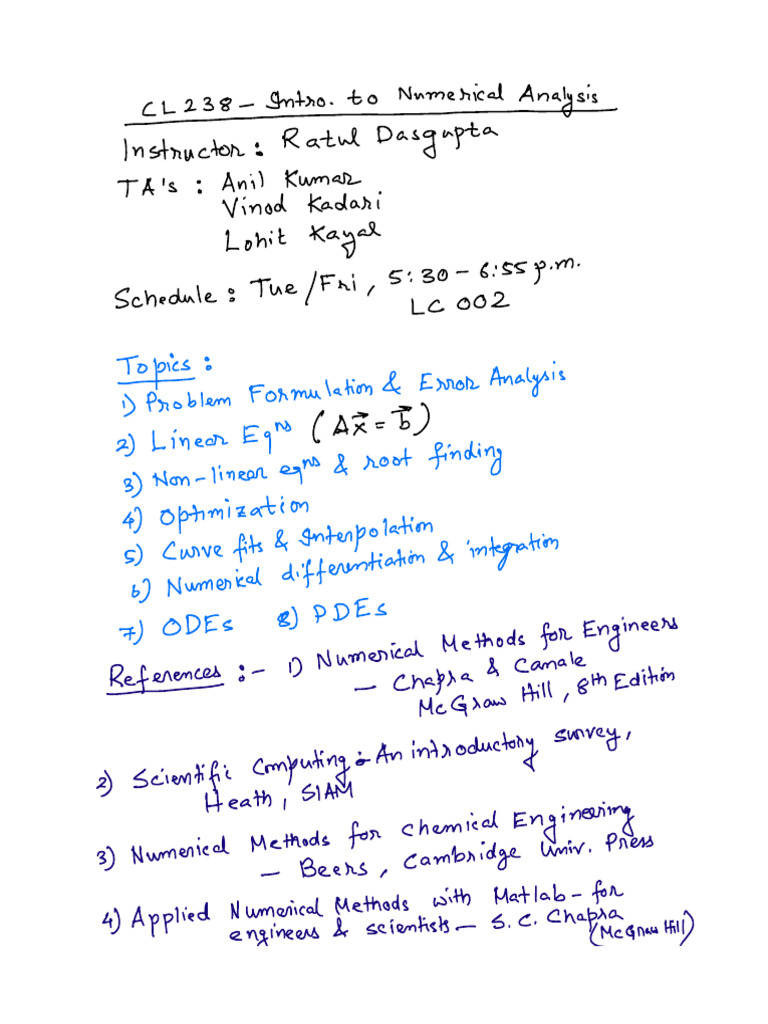 CL238 – Intro. to Numerical Analysis
Instructor: Ratul Dasgupta
TA's: Anil Kumar
Vinod Kadari
Lohit Kayal
Schedule: Tue/Fri, 5:30 – 6:55 p.m.
LC 002
Topics:
1) Problem Formulation & Error Analysis
2) Linear Eqⁿˢ (Ax⃗ = b⃗)
3) Non-linear eqⁿˢ & root finding
4) Optimization
5) Curve fits & Interpolation
6) Numerical differentiation & integration
7) ODEs 8) PDEs
References :- 1) Numerical Methods for Engineers
– Chapra & Canale
McGraw Hill, 8th Edition
2) Scientific Computing :- An introductory survey,
Heath, SIAM
3) Numerical Methods for Chemical Engineering
– Beers, Cambridge Univ. Press
4) Applied Numerical Methods with Matlab – for
engineers & scientists – S. C. Chapra
(McGraw Hill)